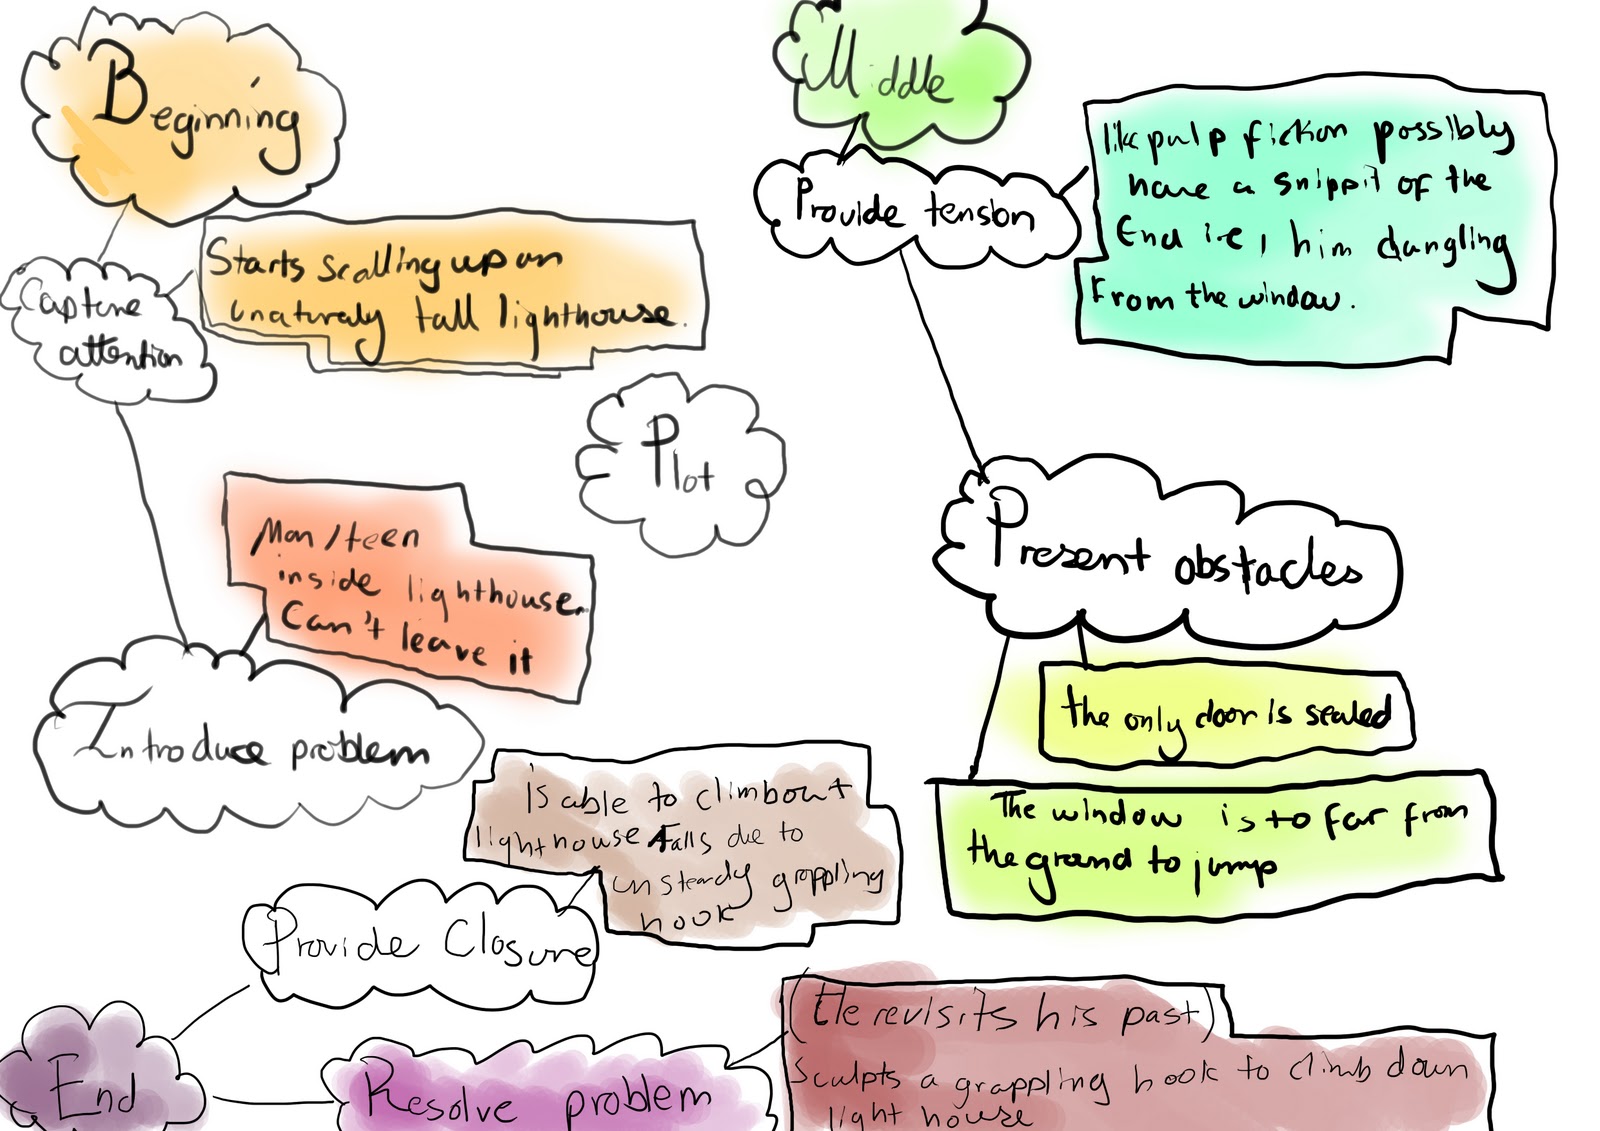 Beginning
Capture
attention
Starts scalling up an
unaturaly tall lighthouse.
Man/teen
inside lighthouse.
Can't leave it
Introduce problem
Plot
Middle
Provide tension
like pulp fiction possibly
have a snippit of the
End i.e, him dangling
From the window.
Present obstacles
the only door is sealed
The window is to far from
the ground to jump
End
Provide Closure
is able to climbout
lighthouse Falls due to
unsteady grappling
hook
Resolve problem
(He revisits his past)
Sculpts a grappling hook to climb down
light house